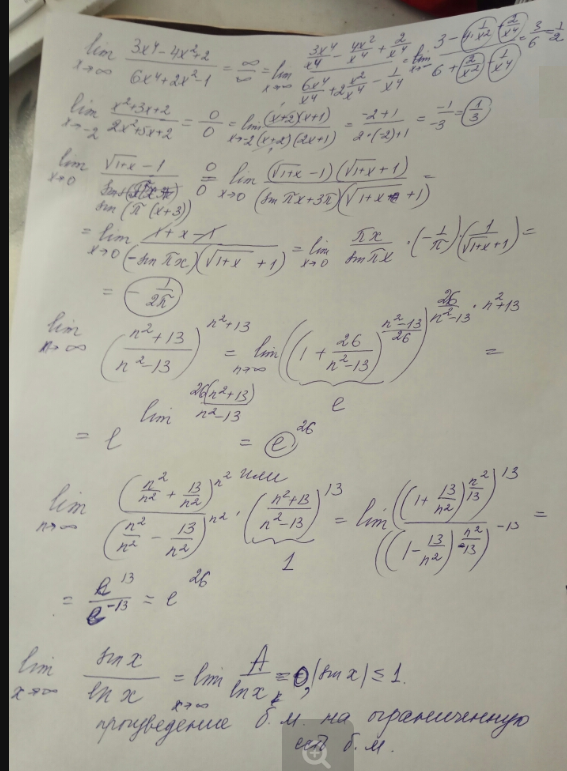 lim x→∞ (3x⁴-4x²+2)/(6x⁴+2x²-1) = ∞/∞ = lim x→∞ (3x⁴/x⁴ - 4x²/x⁴ + 2/x⁴)/(6x⁴/x⁴ + 2x²/x⁴ - 1/x⁴) = lim x→∞ (3-4·1/x²+2/x⁴)/(6+2/x²-1/x⁴) = 3/6 = 1/2
lim x→-2 (x²+3x+2)/(2x²+5x+2) = 0/0 = lim x→-2 (x+2)(x+1)/(x+2)(2x+1) = (-2+1)/(2·(-2)+1) = -1/-3 = 1/3
lim x→0 (√1+x - 1)/(sin(π(x+3))) 0/0 = lim x→0 (√1+x - 1)(√1+x + 1)/(sin πx+3π)(√1+x + 1) =
= lim x→0 (1+x-1)/(-sin πx)(√1+x + 1) = lim x→0 πx/sin πx · (-1/π)(1/(√1+x + 1)) =
= -1/2π
lim n→∞ ((n²+13)/(n²-13))^(n²+13) = lim n→∞ ((1+26/(n²-13))^((n²-13)/26))^(26/(n²-13) · n²+13) =
e
= e^(lim 26(n²+13)/(n²-13)) = e²⁶
или
lim n→∞ (n²/n²+13/n²)^n²/(n²/n²-13/n²)^n² · ((n²+13)/(n²-13))¹³ = lim ((1+13/n²)^(n²/13))¹³/((1-13/n²)^(-n²/13))⁻¹³ =
1
= e¹³/e⁻¹³ = e²⁶
lim x→∞ sin x/ln x = lim x→∞ A/ln x = 0, |sin x| ≤ 1.
произведение б.м. на ограниченную
есть б.м.